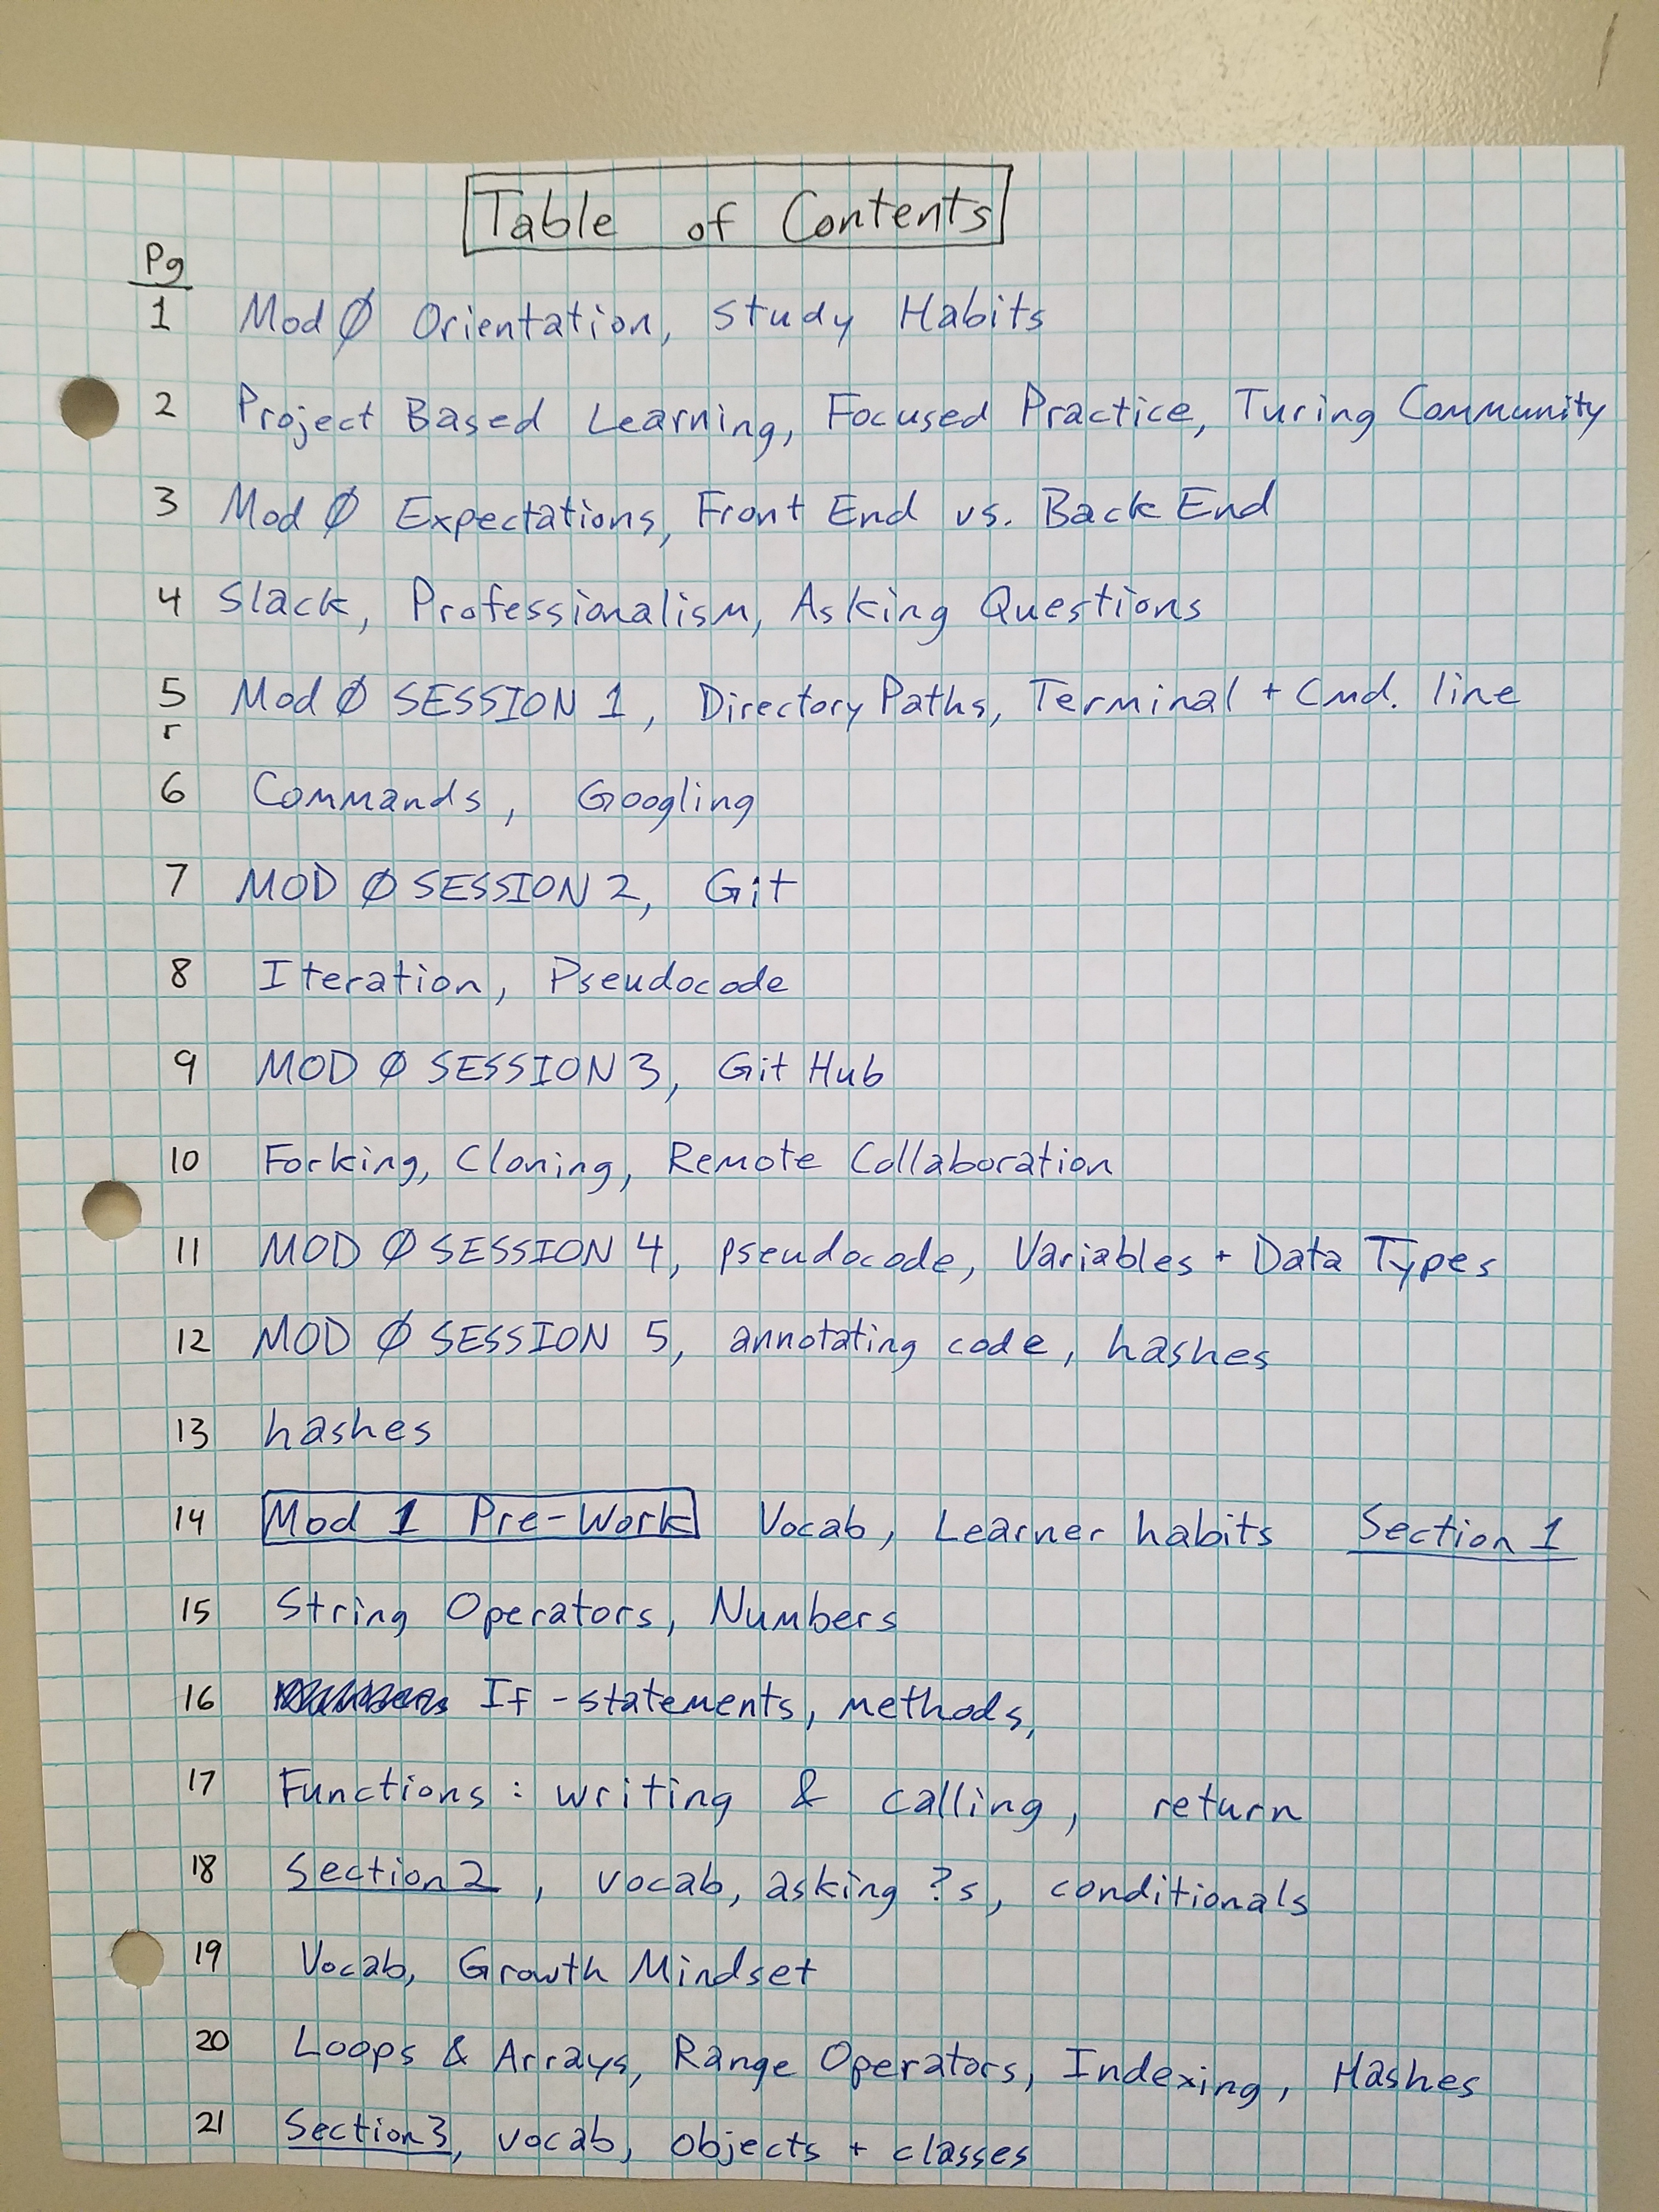 Table of Contents
Pg
1 Mod Ø Orientation, Study Habits
2 Project Based Learning, Focused Practice, Turing Community
3 Mod Ø Expectations, Front End vs. Back End
4 Slack, Professionalism, Asking Questions
5 Mod Ø SESSION 1, Directory Paths, Terminal + Cmd. line
6 Commands, Googling
7 MOD Ø SESSION 2, Git
8 Iteration, Pseudocode
9 MOD Ø SESSION 3, Git Hub
10 Forking, Cloning, Remote Collaboration
11 MOD Ø SESSION 4, pseudocode, Variables + Data Types
12 MOD Ø SESSION 5, annotating code, hashes
13 hashes
14 Mod 1 Pre-Work Vocab, Learner habits Section 1
15 String Operators, Numbers
16 If-statements, methods,
17 Functions: writing & calling, return
18 Section 2, vocab, asking ?s, conditionals
19 Vocab, Growth Mindset
20 Loops & Arrays, Range Operators, Indexing, Hashes
21 Section 3, vocab, objects + classes